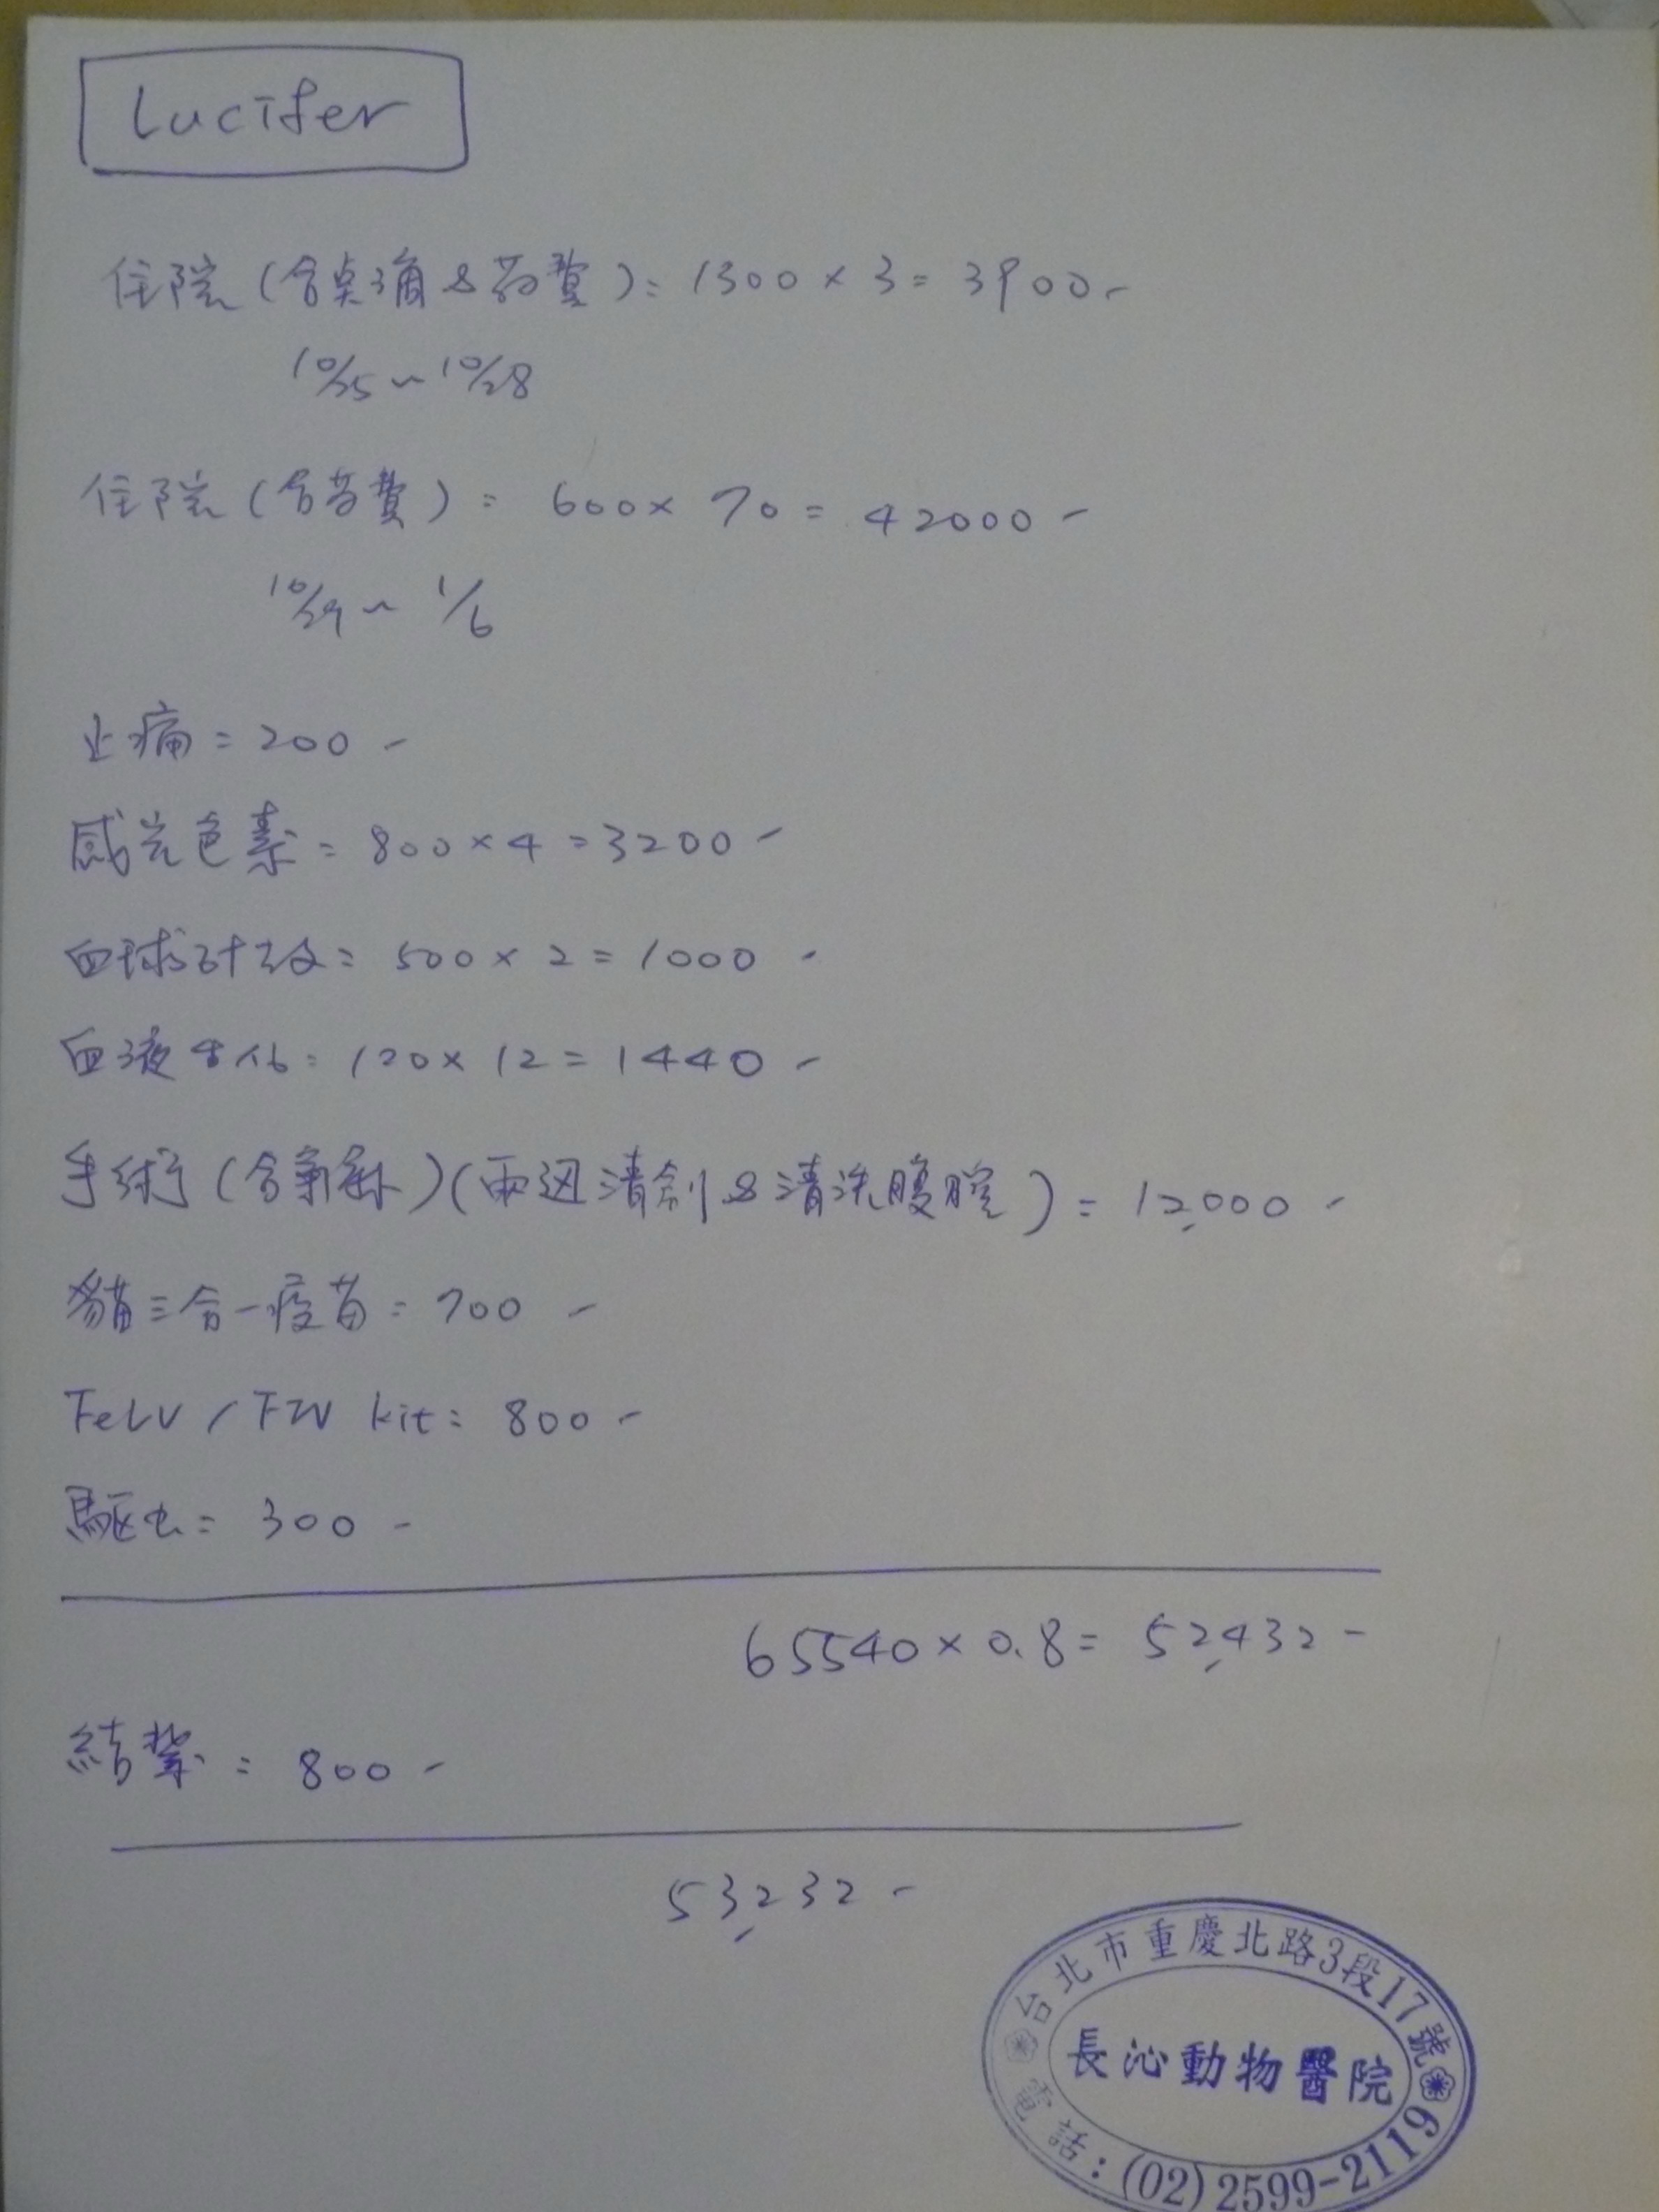 Lucifer
住院(含点滴&药費)=1300×3=3900-
10/25~10/28
住院(含药費)=600×70=42000-
10/29~1/6
止痛=200-
感光色素=800×4=3200-
血球計数=500×2=1000-
血液生化=120×12=1440-
手術(含麻醉)(兩週清創&清洗腹腔)=12,000-
貓三合一疫苗=700-
FeLV/FIV kit=800-
驅虫=300-
65540×0.8=52,432-
結紮=800-
53,232-
台北市重慶北路3段17號
長沁動物醫院
電話:(02)2599-2119